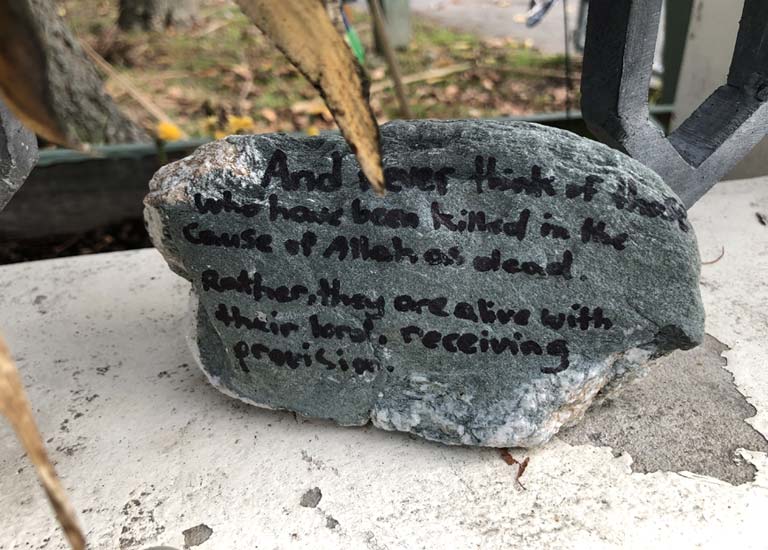 And never think of those
who have been killed in the
cause of Allah as dead.
Rather, they are alive with
their lord, receiving
provision.